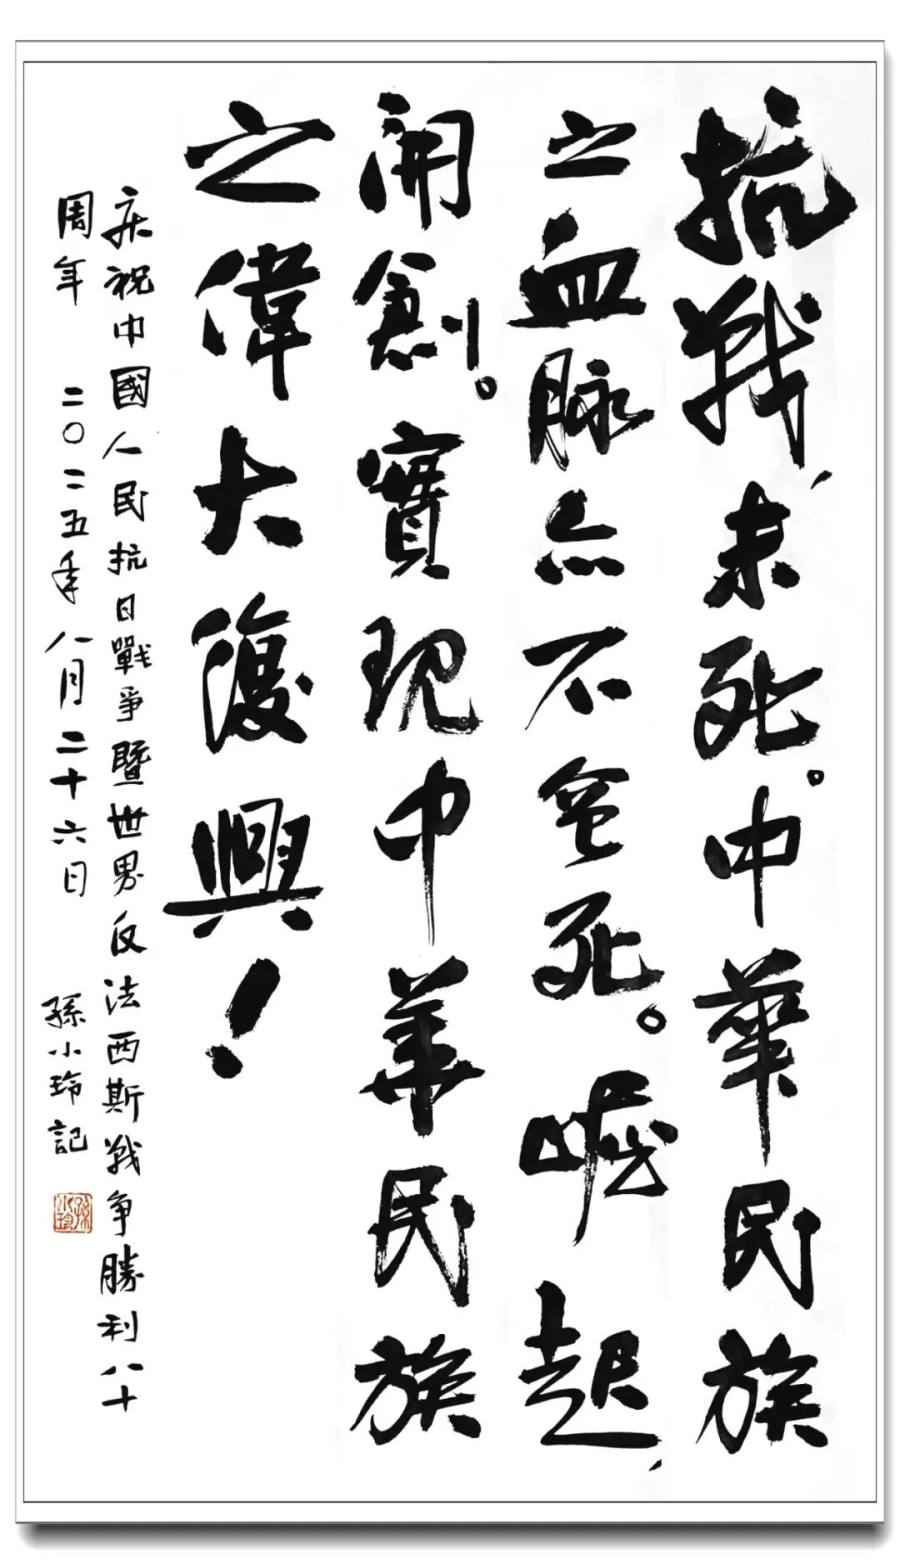 抗戰、未死。中華民族
之血脉亦不會死。崛起、
開創。實現中華民族
之偉大復興！
庆祝中國人民抗日戰爭暨世界反法西斯戰争勝利八十
周年 二〇二五年八月二十六日 孫小玲記